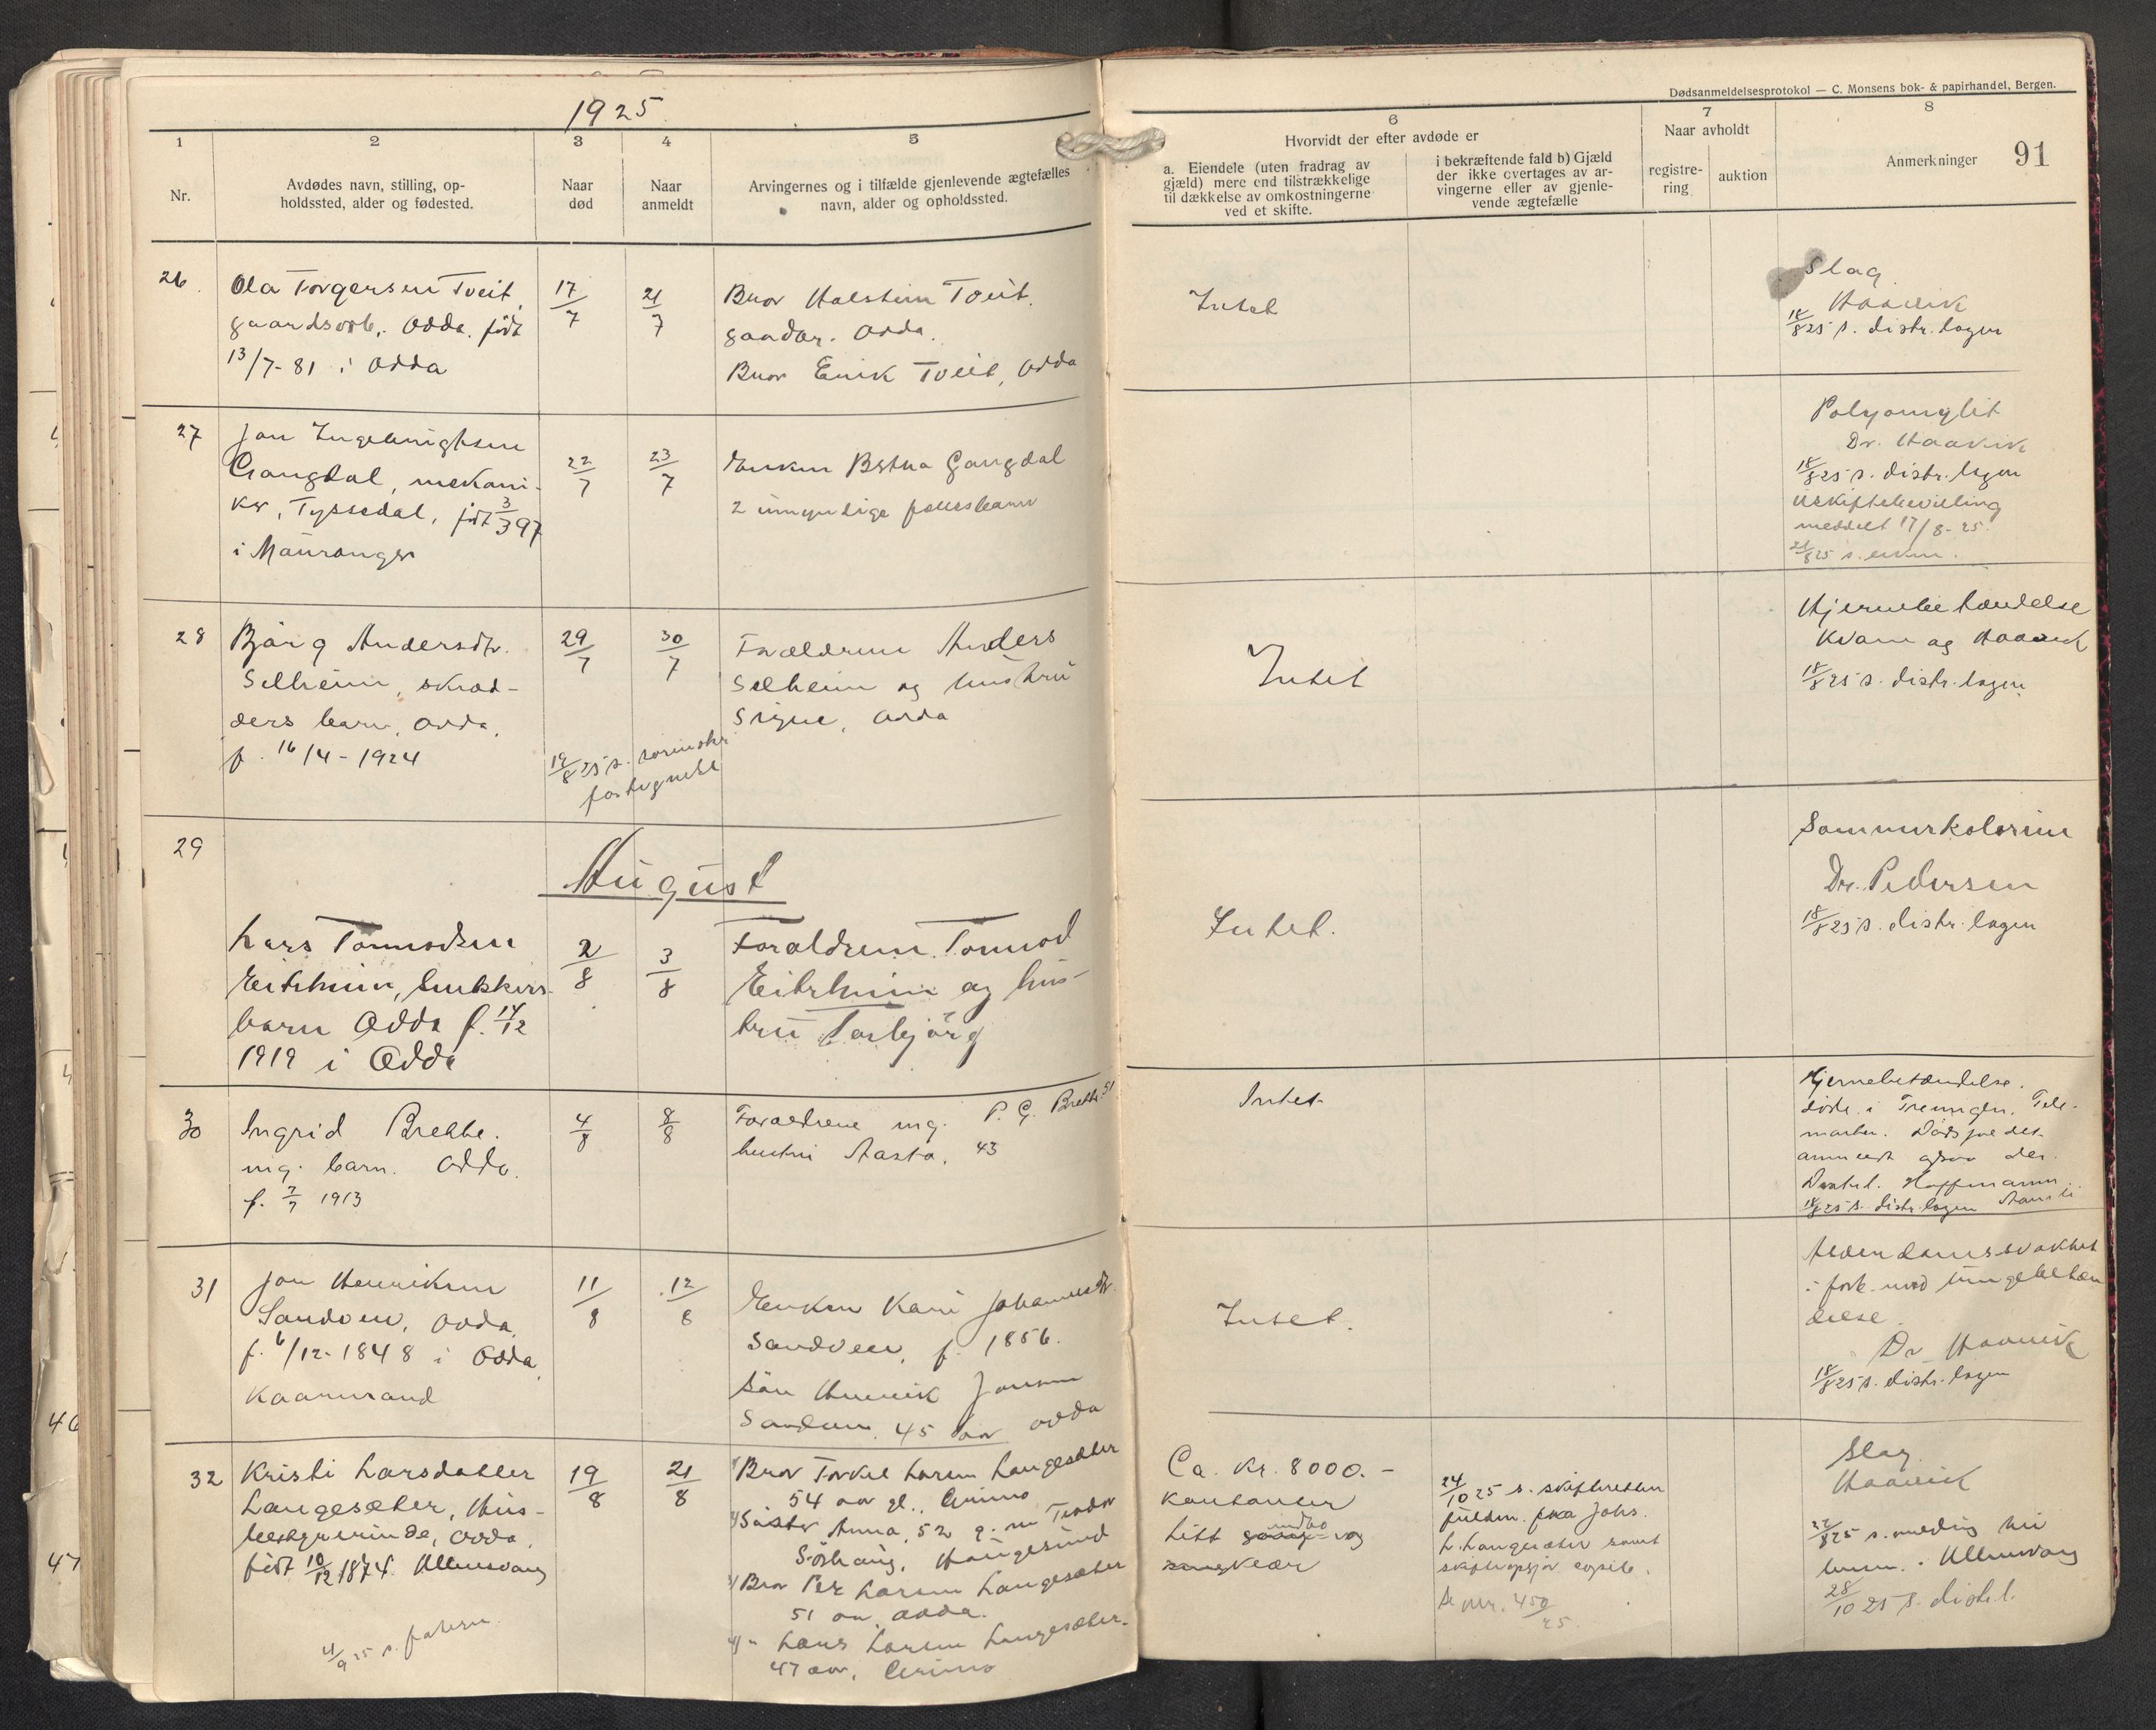 1925.
Dødsanmeldelsesprotokol — C. Monsens bok- & papirhandel, Bergen.
91
1
Nr.
2
Avdødes navn, stilling, op-
holdssted, alder og fødested.
3
Naar
død
4
Naar
anmeldt
5
Arvingernes og i tilfælde gjenlevende ægtefælles
navn, alder og opholdssted.
6
Hvorvidt der efter avdøde er
a. Eiendele (uten fradrag av
gjæld) mere end tilstrækkelige
til dækkelse av omkostningerne
ved et skifte.
i bekræftende fald b) Gjæld
der ikke overtages av ar-
vingerne eller av gjenle-
vende ægtefælle
7
Naar avholdt
registre-
ring
auktion
8
Anmerkninger
26.
Ola Torgersen Tveit,
gaardsarb., Odda. født
13/7-81 i Odda
17/7
21/7
Bror Halstein Tveit.
gaardbr. Odda.
Bror Eirik Tveit, Odda
Intet
Slag
Haavik
18/8 25 s. distr. lægen
27
Jon Ingebrigtsen
Gangdal, mekani-
ker, Tyssedal, født 3/3 97
i Mauranger
22/7
23/7
Enken Gangdal
2 umyndige fællesbarn
Dr. Haavik
18/8 25 s. distr. lægen
Uskiftebevilling
meddelt 17/8-25.
21/8 25 s. enken.
28
Bjørg Andersdtr.
Selheim, skræd-
ders barn, Odda.
f. 16/4-1924
29/7
30/7
Forældrene Anders
Selheim og hustru
Signe, Odda
Intet
Hjernebetændelse
Kvam og Haavik
18/8 25 s. distr. lægen
19/8 25 s. sorenskr.
29
August
Lars Tormodsen
Eitrheim, snekkers
barn Odda f. 14/12
1919 i Odda
2/8
3/8
Forældrene Tormod
Eitrheim og hus-
tru Torbjørg
Intet.
Sommerkolerine
Dr. Pedersen
18/8 25 s. distr. lægen
30
Ingrid Brekke.
ing. barn. Odda.
f. 7/7 1913
4/8
8/8
Forældrene ing. P. G. Brekke 51
hustru Aasta. 43
Intet
Hjernebetændelse.
døde i Treungen, Tele-
marken. Dødsfaldet
anmeldt ogsaa der.
Hoffmann
18/8 25 s. distr. lægen
31
Jon Henriksen
Sandven, Odda.
f. 6/12-1848 i Odda.
Kaarmand
11/8
12/8
Enken Kari Johannesdtr.
Sandven, f. 1856.
Søn Henrik Jonsen
Sandven. 45 aar Odda
Intet.
Alderdomssvakhet
i forb. med lungebetæn
delse.
Dr. Haavik
18/8 25 s. distr. lægen
32
Kristi Larsdatter
Langesæter, Hus-
bestyrerinde, Odda.
født 10/12 1874. Ullensvang
19/8
21/8
1) Bror Torkel Larsen Langesæter
54 aar gl.,
2) Søster Anna, 52 g. m
Haugesund
3) Bror Per Larsen Langesæter
51 aar Odda.
4) " Lars Larsen Langesæter.
47 aar,
Ca. Kr. 8000.-
Kontanter
Litt indbo og
gangklær
24/10 25 s. skifteretten
fuldm. fra Johs.
L. Langesæter samt
Se nr. 450/25.
Slag
Haavik
22/8 25 s. melding til
lensm. i Ullensvang
28/10 25 s. distr. l.
4/9 25 s.